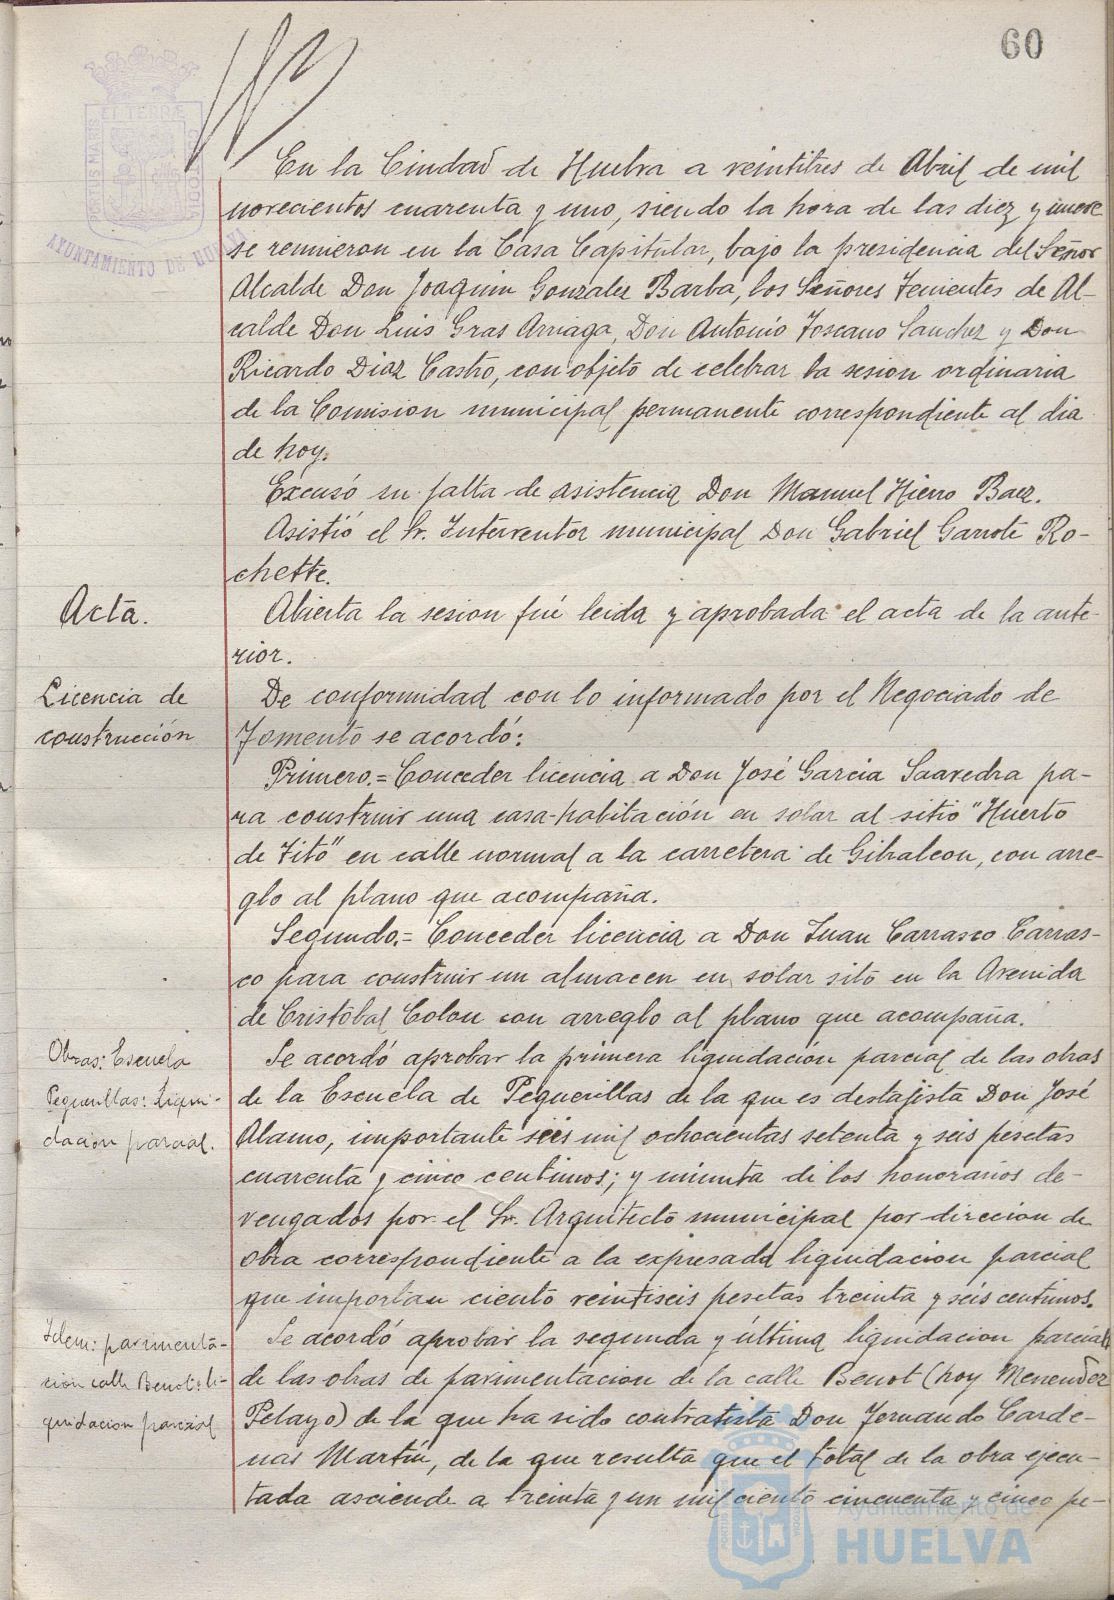 60
En la Ciudad de Huelva a veintitres de Abril de mil
novecientos cuarenta y uno, siendo la hora de las diez y nueve
se reunieron en la Casa Capitular, bajo la presidencia del Señor
Alcalde Don Joaquin Gonzalez Barba, los Señores Tenientes de Al-
calde Don Luis Gras Arriaga, Don Antonio Toscano Sanchez y Don
Ricardo Diaz Castro, con objeto de celebrar la sesion ordinaria
de la Comision municipal permanente correspondiente al dia
de hoy.
Excusó su falta de asistencia Don Manuel Hierro Baez.
Asistió el Sr. Interventor municipal Don Gabriel Garrote Ro-
chette.
Acta.
Abierta la sesion fué leida y aprobada el acta de la ante-
rior.
Licencia de
construcción
De conformidad con lo informado por el Negociado de
Fomento se acordó:
Primero.= Conceder licencia a Don José Garcia Saavedra pa-
ra construir una casa-habitación en solar al sitio "Huerto
de Tito" en calle normal a la carretera de Gibraleon, con arre-
glo al plano que acompaña.
Segundo.= Conceder licencia a Don Juan Carrasco Carras-
co para construir un almacen en solar sito en la Avenida
de Cristóbal Colon con arreglo al plano que acompaña.
Obras: Escuela
Pequerillas: Liqui-
dación parcial.
Se acordó aprobar la primera liquidación parcial de las obras
de la Escuela de Pequerillas de la que es destajista Don José
Alamo, importante seis mil ochocientas setenta y seis pesetas
cuarenta y cinco centimos; y minuta de los honorarios de-
vengados por el Sr. Arquitecto municipal por direccion de
obra correspondiente a la expresada liquidacion parcial
que importan ciento veintiseis pesetas treinta y seis centimos.
Idem: pavimenta-
cion calle Benot: li-
quidacion parcial
Se acordó aprobar la segunda y última liquidacion parcial
de las obras de pavimentacion de la calle Benot (hoy Menendez
Pelayo) de la que ha sido contratista Don Fernando Carde-
nas Martín, de la que resulta que el total de la obra ejecu-
tada asciende a treinta y un mil ciento cincuenta y cinco pe-
AYUNTAMIENTO DE HUELVA
Ayuntamiento de
HUELVA